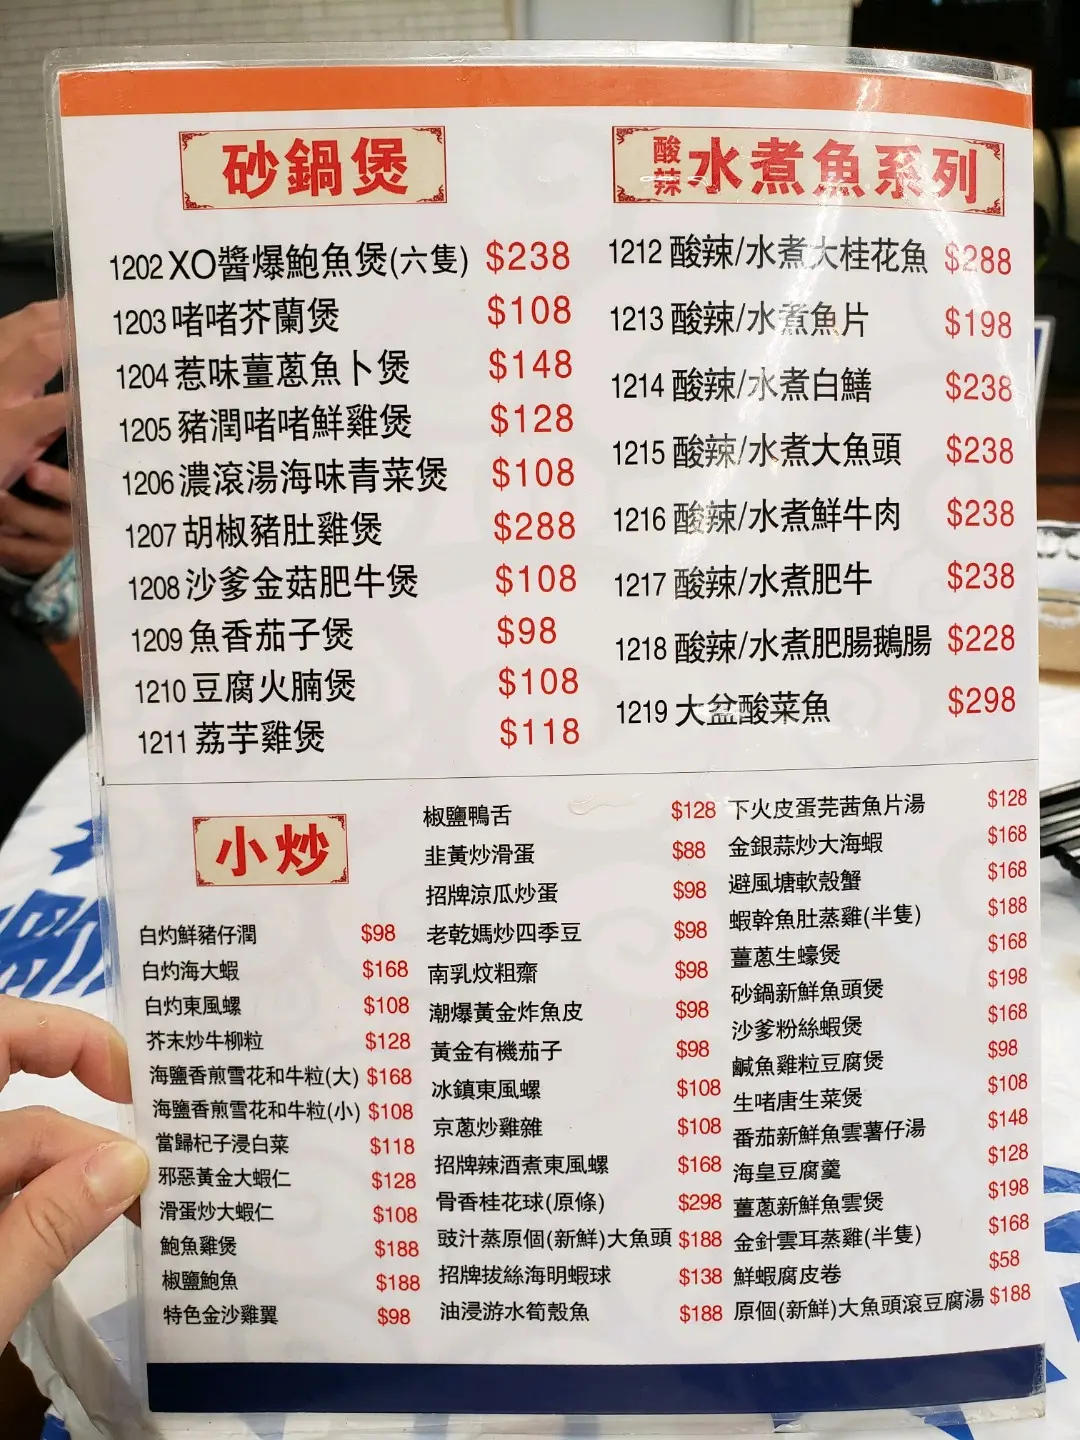 砂鍋煲
1202 XO醬爆鮑魚煲(六隻) $238
1203 啫啫芥蘭煲 $108
1204 惹味薑蔥魚卜煲 $148
1205 豬潤啫啫鮮雞煲 $128
1206 濃滾湯海味青菜煲 $108
1207 胡椒豬肚雞煲 $288
1208 沙爹金菇肥牛煲 $108
1209 魚香茄子煲 $98
1210 豆腐火腩煲 $108
1211 荔芋雞煲 $118
酸辣水煮魚系列
1212 酸辣/水煮大桂花魚 $288
1213 酸辣/水煮魚片 $198
1214 酸辣/水煮白鱔 $238
1215 酸辣/水煮大魚頭 $238
1216 酸辣/水煮鮮牛肉 $238
1217 酸辣/水煮肥牛 $238
1218 酸辣/水煮肥腸鵝腸 $228
1219 大盆酸菜魚 $298
小炒
白灼鮮豬仔潤 $98
白灼海大蝦 $168
白灼東風螺 $108
芥末炒牛柳粒 $128
海鹽香煎雪花和牛粒(大) $168
海鹽香煎雪花和牛粒(小) $108
當歸杞子浸白菜 $118
邪惡黃金大蝦仁 $128
滑蛋炒大蝦仁 $108
鮑魚雞煲 $188
椒鹽鮑魚 $188
特色金沙雞翼 $98
椒鹽鴨舌 $128
韭黃炒滑蛋 $88
招牌涼瓜炒蛋 $98
老乾媽炒四季豆 $98
南乳炆粗齋 $98
潮爆黃金炸魚皮 $98
黃金有機茄子 $98
冰鎮東風螺 $108
京蔥炒雞雜 $108
招牌辣酒煮東風螺 $168
骨香桂花球(原條) $298
豉汁蒸原個(新鮮)大魚頭 $188
招牌拔絲海明蝦球 $138
油浸游水筍殼魚 $188
下火皮蛋芫茜魚片湯 $128
金銀蒜炒大海蝦 $168
避風塘軟殼蟹 $168
蝦幹魚肚蒸雞(半隻) $188
薑蔥生蠔煲 $168
砂鍋新鮮魚頭煲 $198
沙爹粉絲蝦煲 $168
鹹魚雞粒豆腐煲 $98
生啫唐生菜煲 $108
番茄新鮮魚雲薯仔湯 $148
海皇豆腐羹 $128
薑蔥新鮮魚雲煲 $198
金針雲耳蒸雞(半隻) $168
鮮蝦腐皮卷 $58
原個(新鮮)大魚頭滾豆腐湯 $188